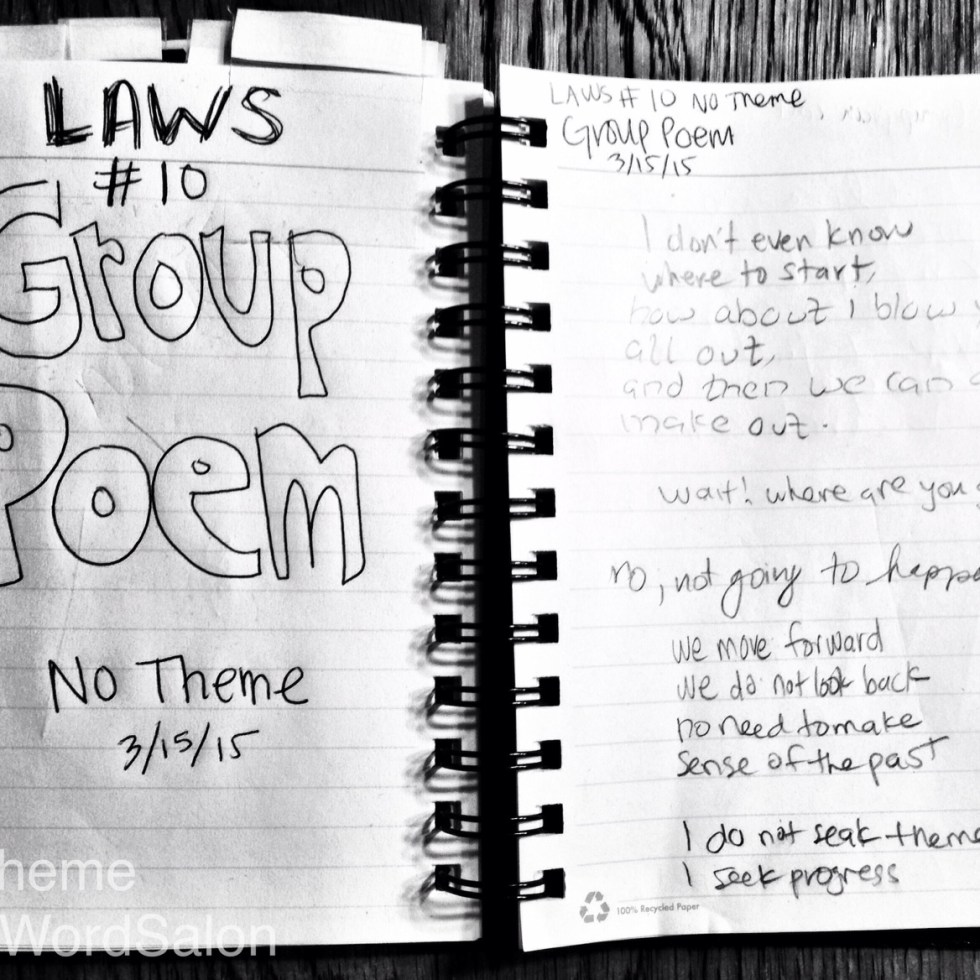 LAWS
#10
Group
Poem
No Theme
3/15/15
heme
WordSalon
LAWS # 10 No Theme
Group Poem
3/15/15
I don't even know
where to start,
how about I blow
all out,
and then we can
make out.
wait! where are you
no, not going to happe
we move forward
we do not look back
no need to make
sense of the past
I do not seak theme
I seek progress
100% Recycled Paper